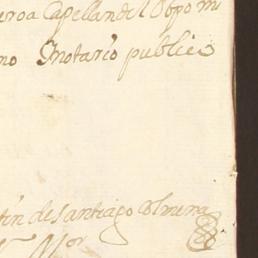 eroa Capellan del Obpo mi
no Snotario publico
tin de santiago Olmera